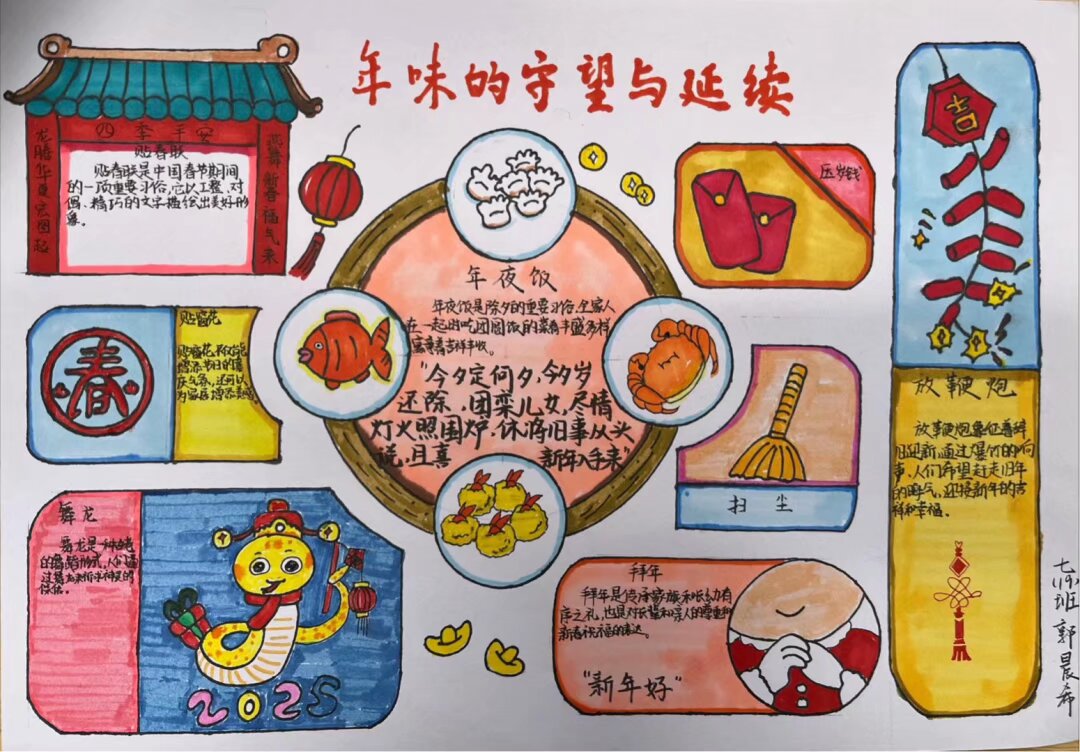 年味的守望与延续
四季平安
龙腾华夏宏图起
燕舞新春福气来
贴春联
贴春联是中国春节期间
的一项重要习俗,它以工整、对
偶、精巧的文字描绘出美好形
象。
压岁钱
吉
年夜饭
年夜饭是除夕的重要习俗,全家人
在一起出吃团圆饭的菜肴丰盛多样
寓意着吉祥丰收。
"今夕定何夕,今夕岁
还除,团栾儿女,尽情
灯火照围炉,休评旧事从头
说,且喜 新年入手来"
春
贴窗花
贴窗花,不仅能
增添节日的喜
庆气氛,还可以
为家居增添
扫尘
放鞭炮
放鞭炮象征着辞
旧迎新,通过爆竹的响
声,人们希望赶走旧年
的晦气,迎接新年的吉
祥和幸福。
舞龙
舞龙是一种
的舞蹈形式,人们通
过舞龙来祈求神灵的
保佑。
2025
拜年
拜年是传承家族和长幼有
序之礼,也是对长辈和亲人的尊重和
新春祝福的表达。
"新年好"
七(19)班 郭晨希